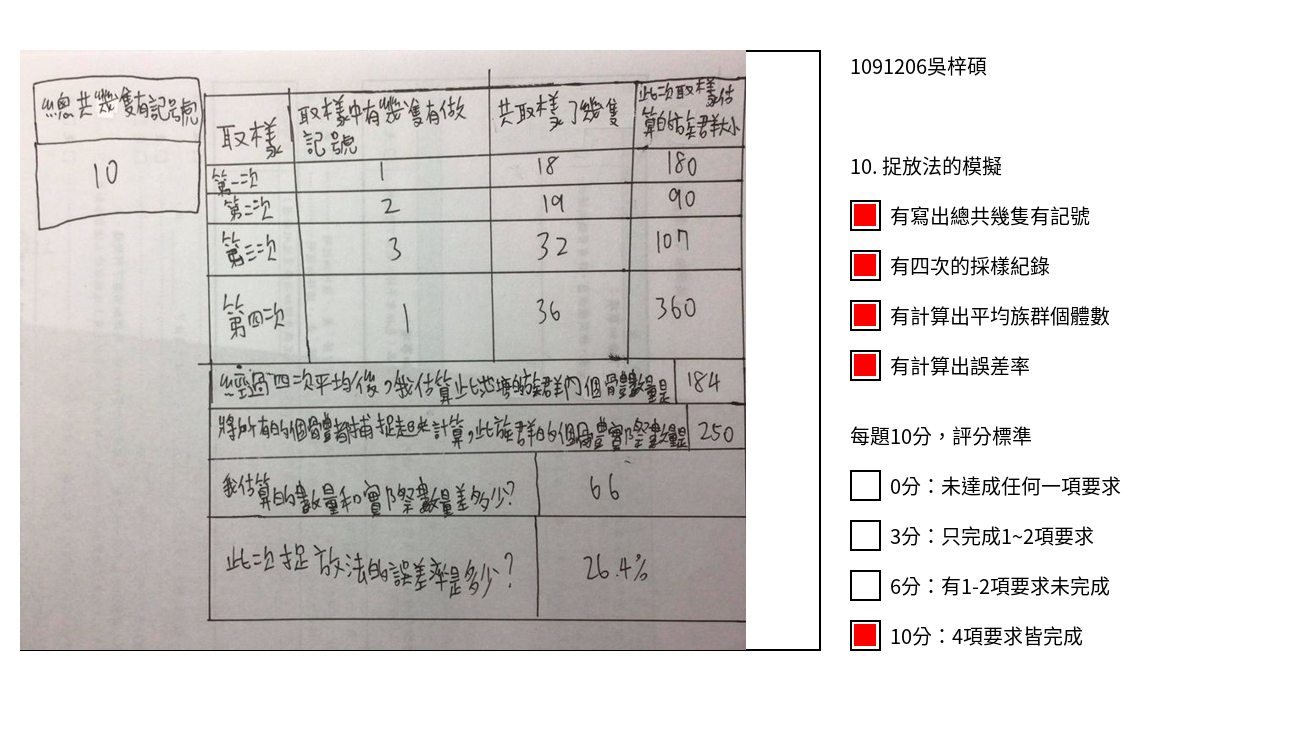 總共幾隻有記號
10
取樣
取樣中有幾隻有做
記號
共取樣了幾隻
此次取樣估
算的族群大小
第一次 1 18 180
第二次 2 19 90
第三次 3 32 107
第四次 1 36 360
經過四次平均後,我估算此池塘的族群內個體數量是 184
將所有的個體都捕捉起來計算,此族群的個體實際數量是 250
我估算的數量和實際數量差多少? 66
此次捉放法的誤差率是多少? 26.4%
1091206吳梓碩
10. 捉放法的模擬
有寫出總共幾隻有記號
有四次的採樣紀錄
有計算出平均族群個體數
有計算出誤差率
每題10分，評分標準
0分：未達成任何一項要求
3分：只完成1~2項要求
6分：有1-2項要求未完成
10分：4項要求皆完成